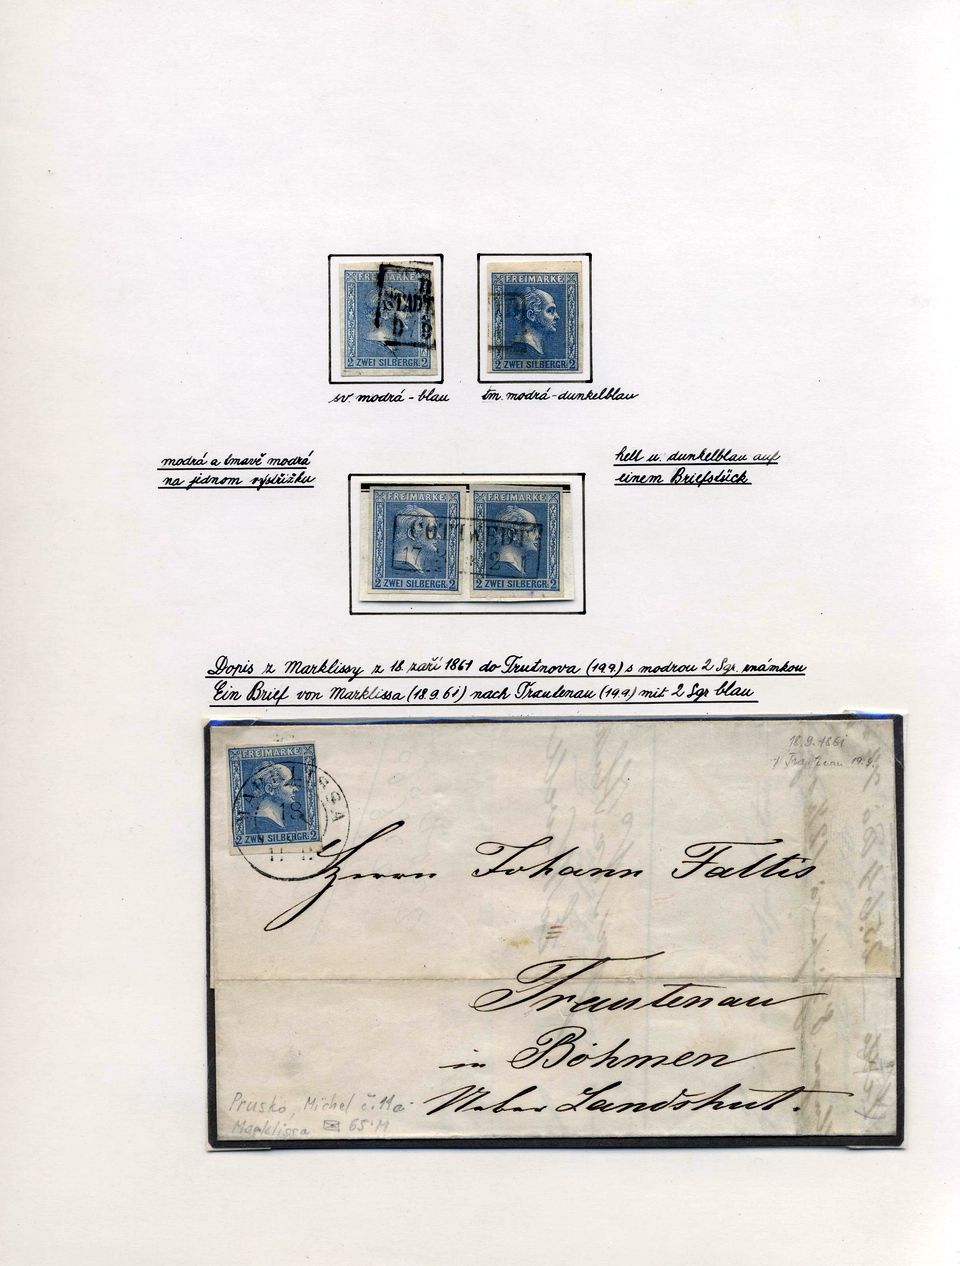 FREIMARKE
STADT
2 ZWEI SILBERGR. 2
FREIMARKE
2 ZWEI SILBERGR. 2
sv. modrá - blau
tm. modrá - dunkelblau
modrá a tmavě modrá
na jednom výstřižku
hell u. dunkelblau auf
einem Briefstück
FREIMARKE
FREIMARKE
17
2 ZWEI SILBERGR. 2
2 ZWEI SILBERGR. 2
Dopis z Marklissy z 18. září 1861 do Trutnova (19.9.) s modrou 2 Sgr. známkou
Ein Brief von Marklissa (18.9.61) nach Trautenau (19.9.) mit 2 Sgr blau
18.9.1861
Trautenau 19.9.
FREIMARKE
MARKLISSA
18
2 ZWEI SILBERGR. 2
Herrn Johann Faltis
Trautenau
in Böhmen
Ueber Landshut.
Prusko, Michel č. 11a
Marklissa 65 M